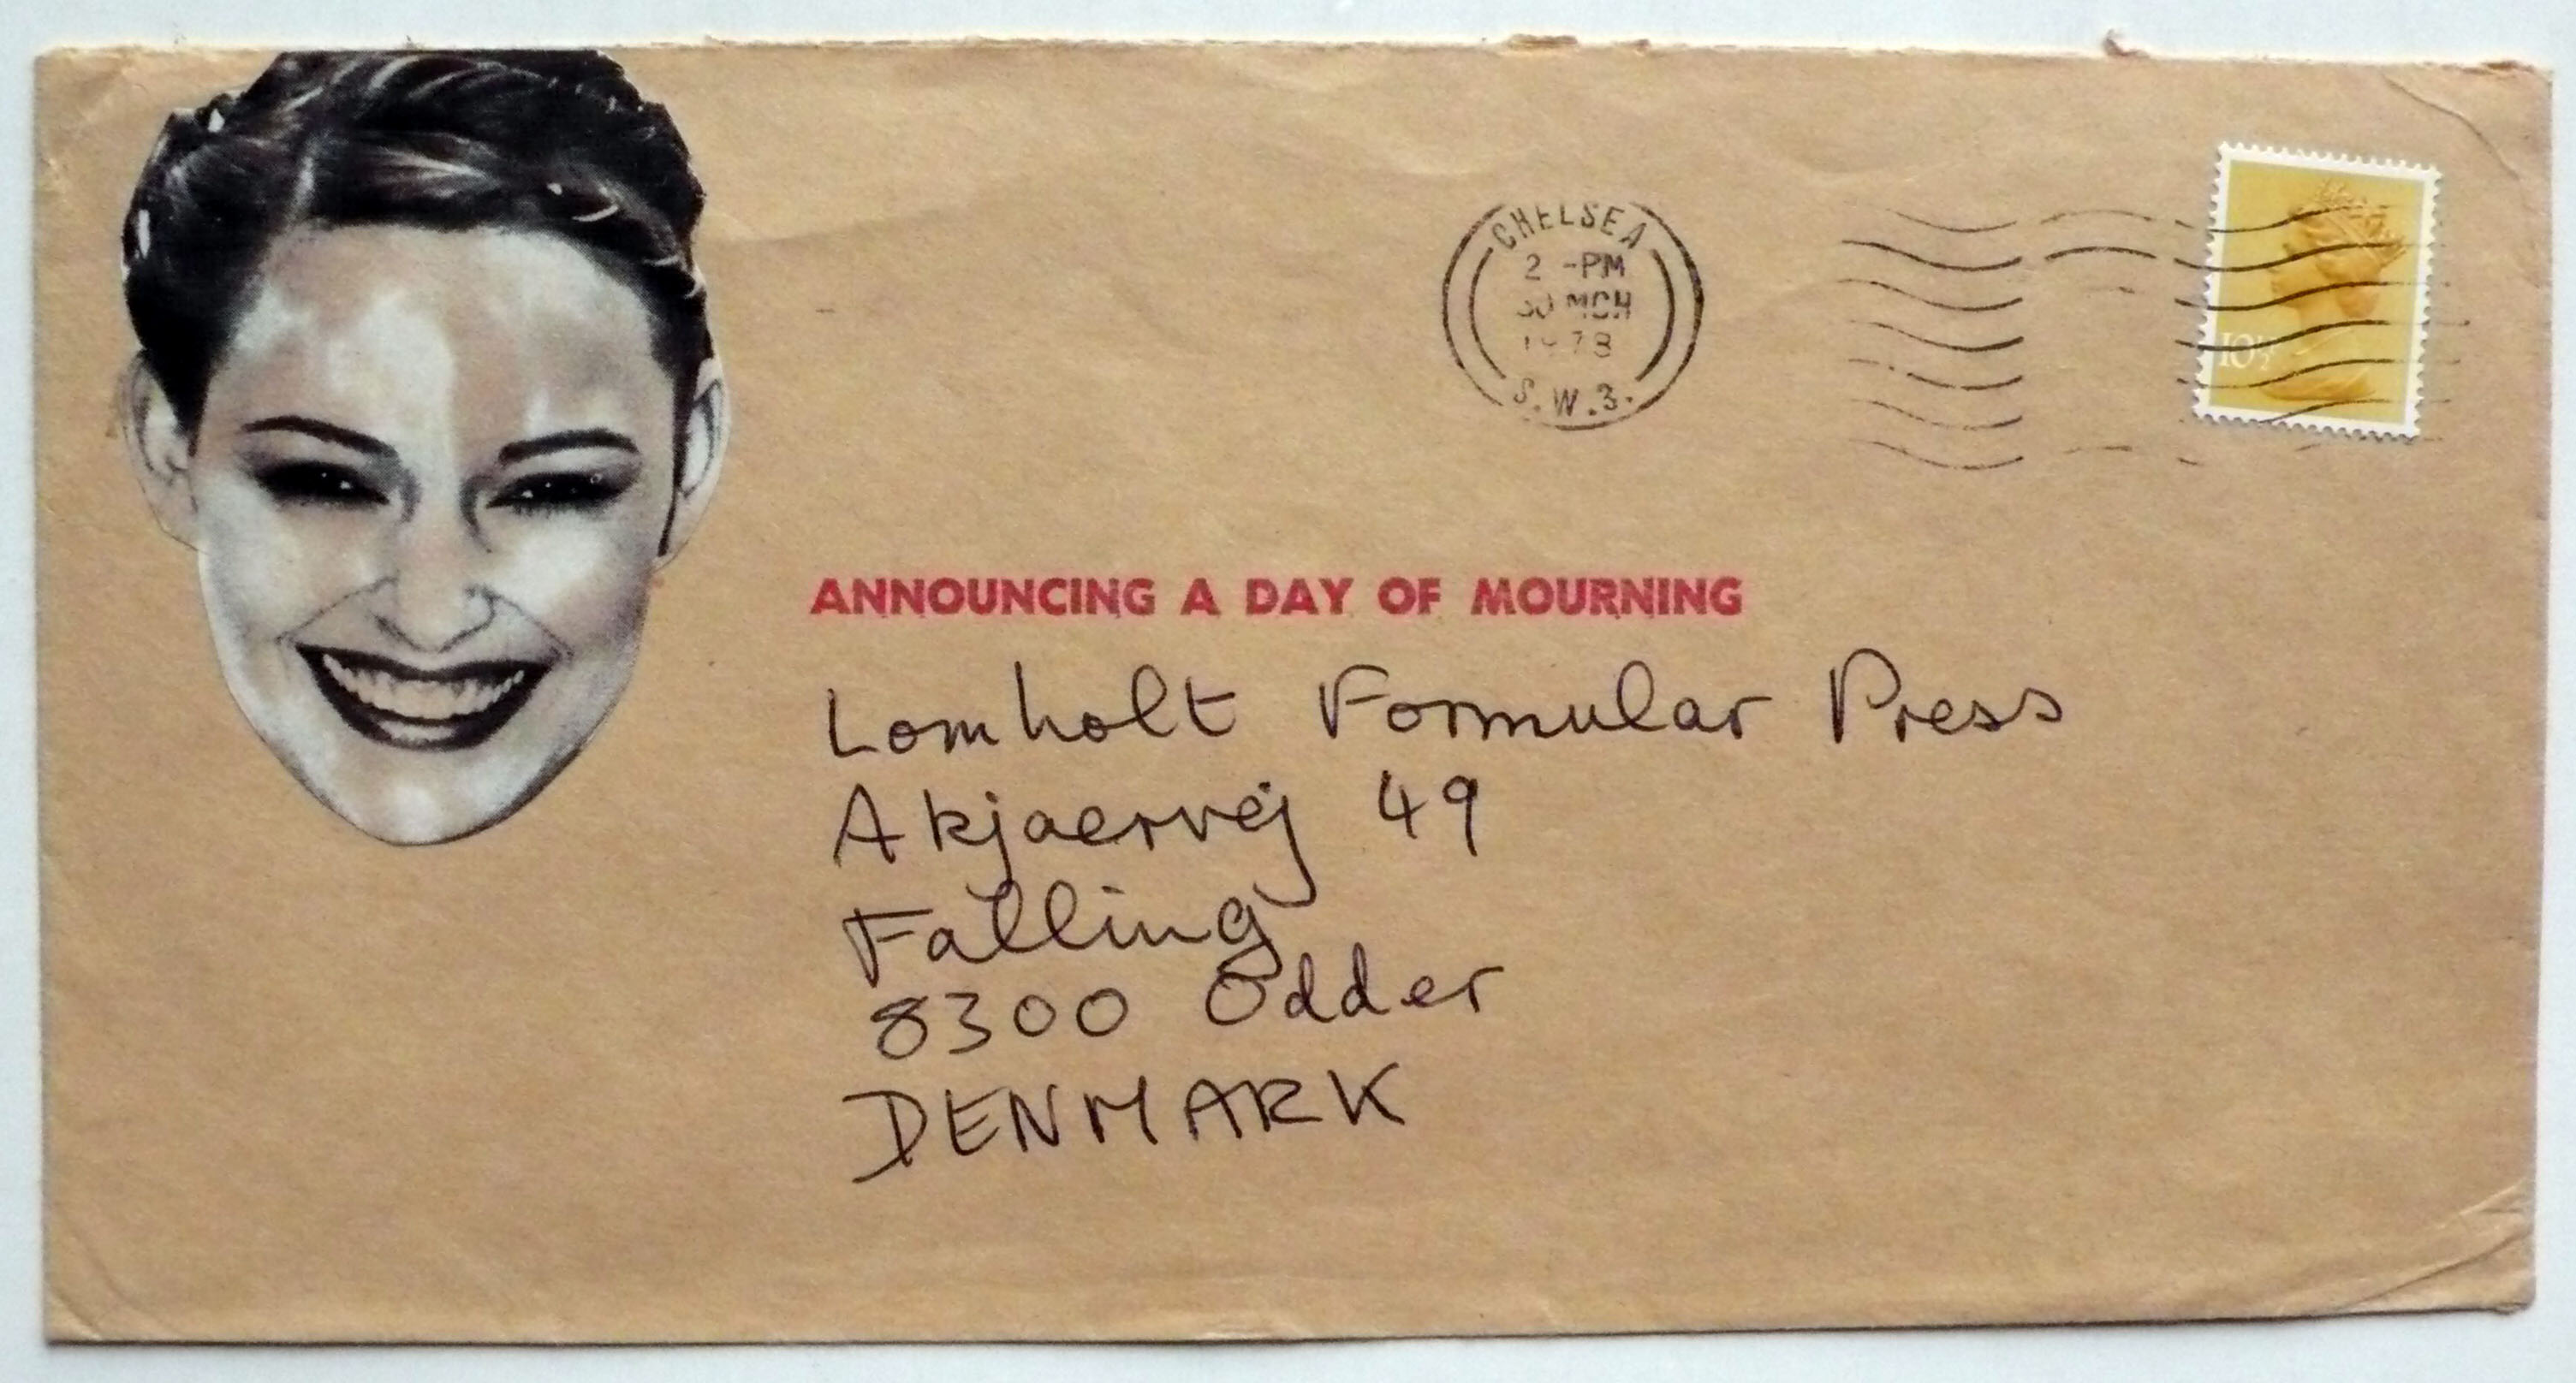 CHELSEA
2 -PM
30 MCH
1978
S.W.3.
10½
ANNOUNCING A DAY OF MOURNING
Lomholt Formular Press
Akjaervej 49
Falling
8300 Odder
DENMARK